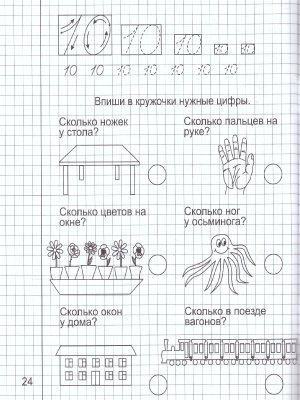 10 10 10 10 10
10 10 10 10 10 10 10
Впиши в кружочки нужные цифры.
Сколько ножек
у стола?
Сколько пальцев на
руке?
Сколько цветов на
окне?
Сколько ног
у осьминога?
Сколько окон
у дома?
Сколько в поезде
вагонов?
24